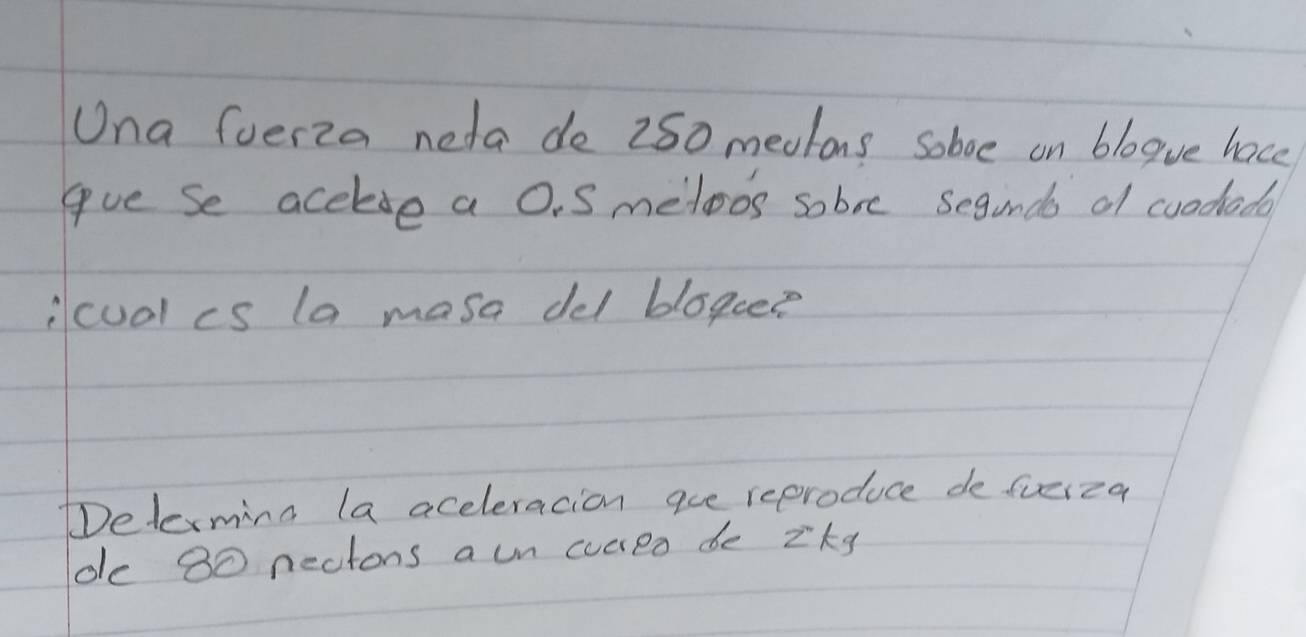 Una fuerza neta de 250 meutons soboe un bloque hace
que se acelere a 0.5 metoos sobre segundo al cuadrado
¡cual es la masa del bloque?
Determina la aceleracion que reproduce de fuerza
de 80 neutons a un cuerpo de 2kg